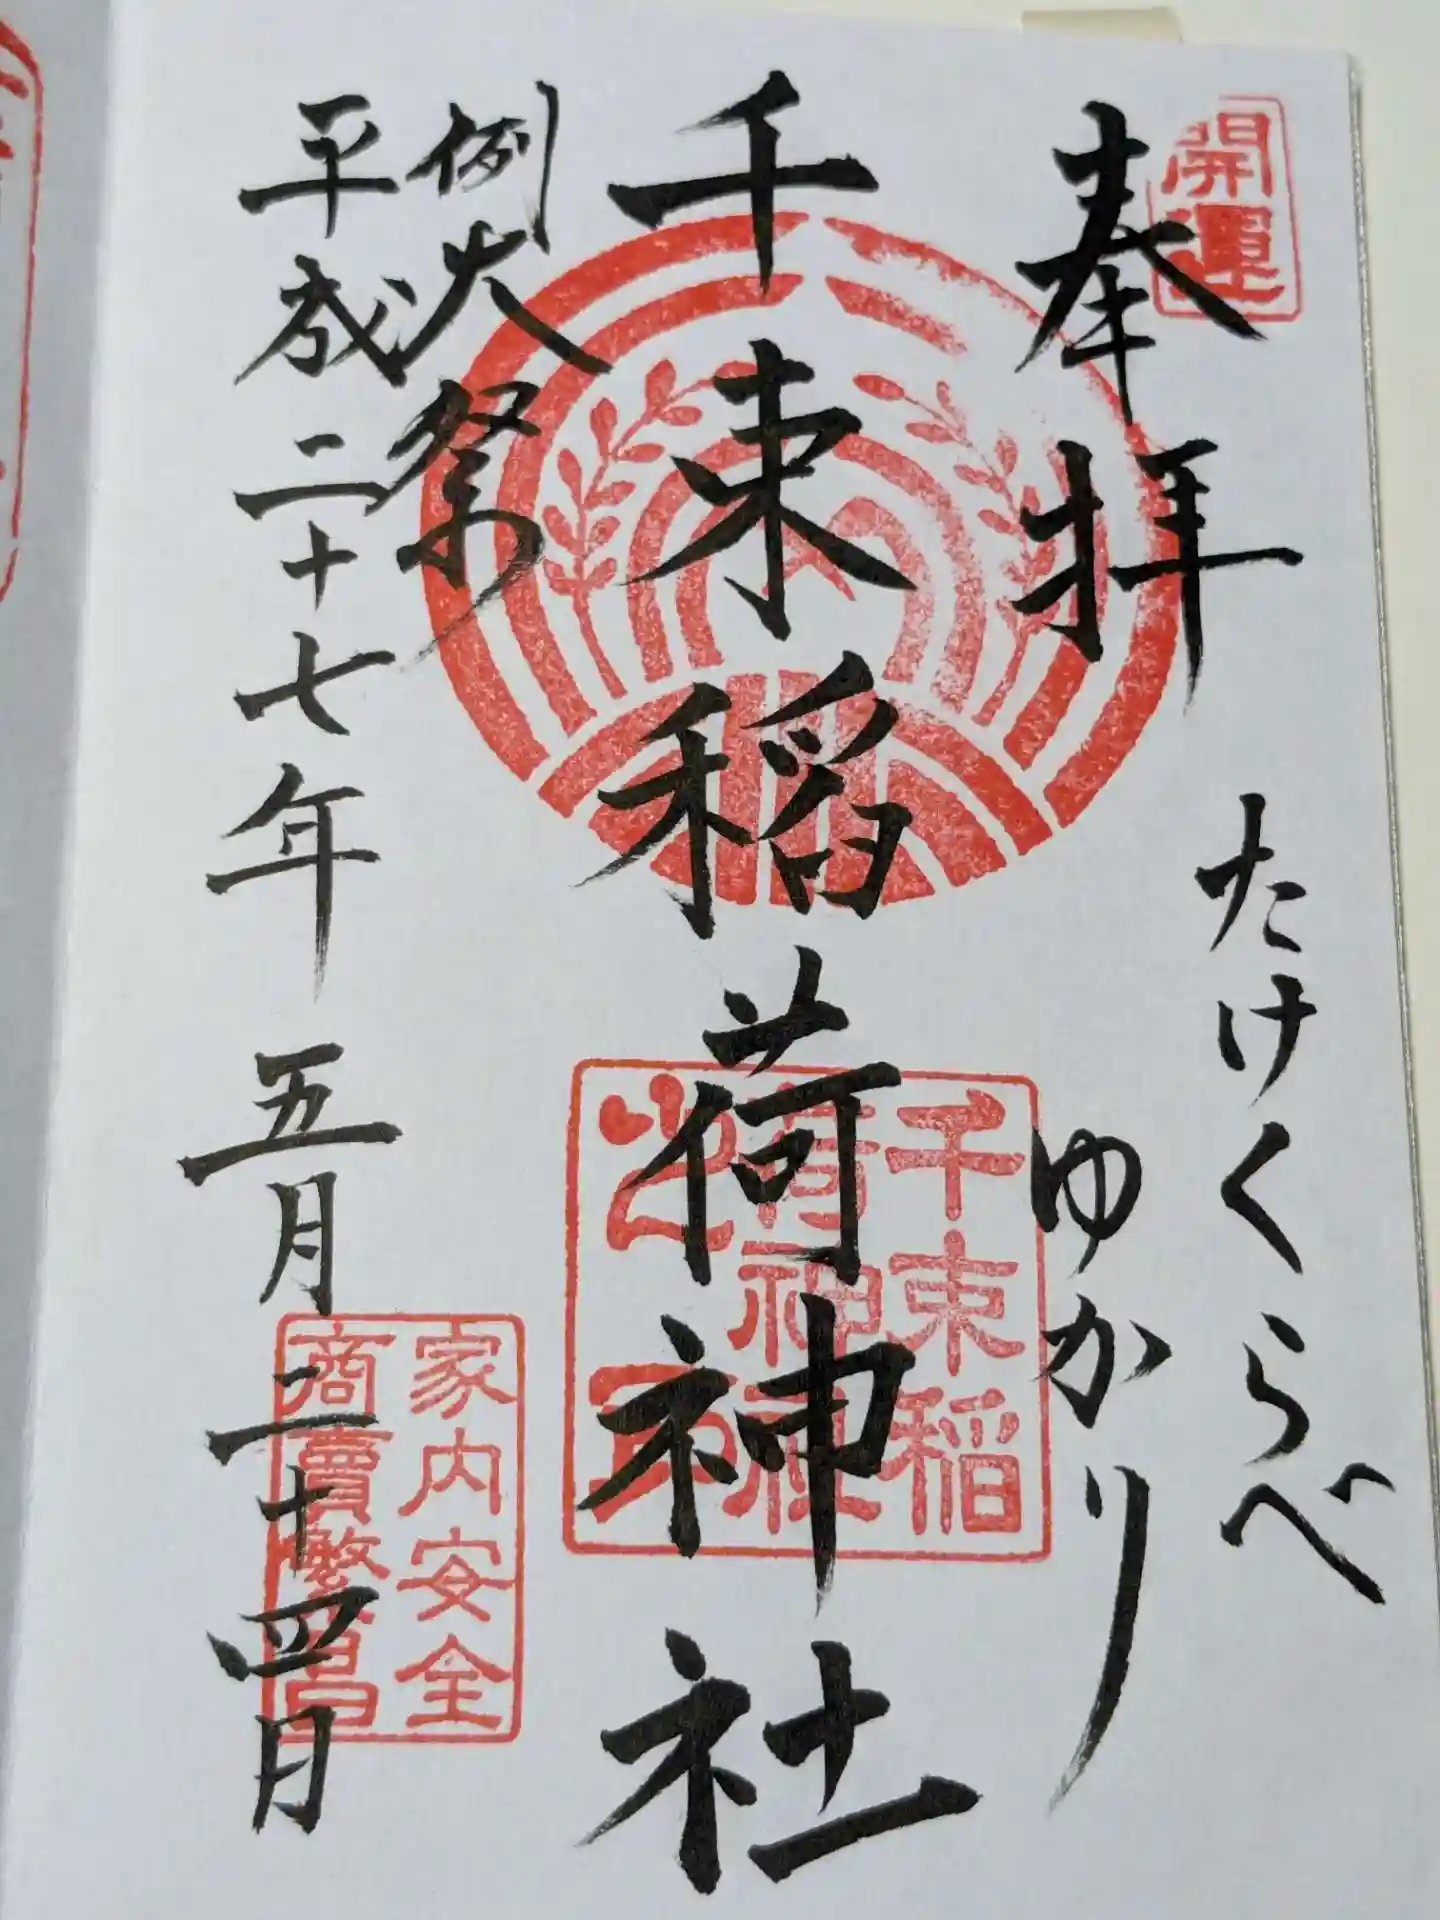 開運
奉拝
たけくらべ
ゆかり
千束稲荷神社
千束稲
荷神社
之印
例大祭
平成二十七年五月二十四日
家内安全
商賣繁昌